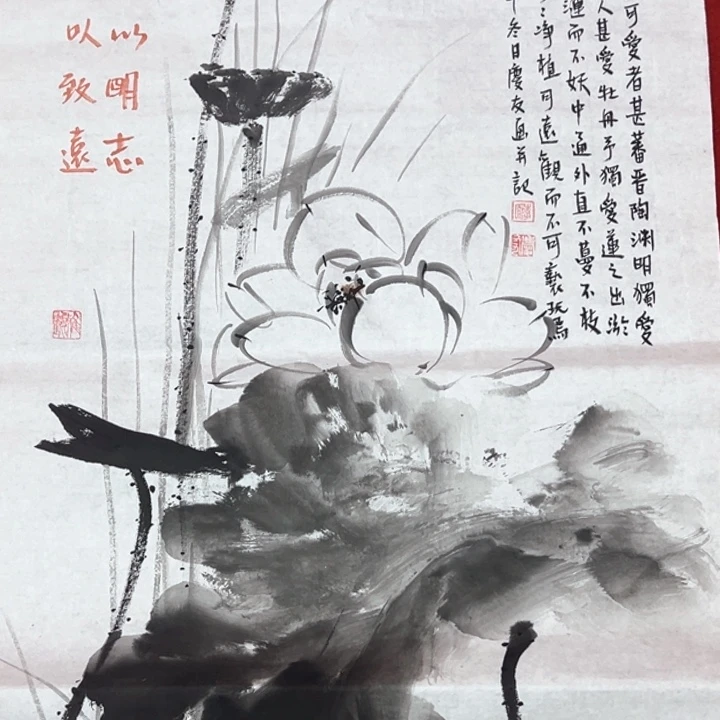 可愛者甚蕃晋陶渊明獨愛
人甚愛牡丹予獨愛蓮之出淤
漣而不妖中通外直不蔓不枝
净植可遠觀而不可褻玩焉
叁日慶友画并記
以明志
以致遠